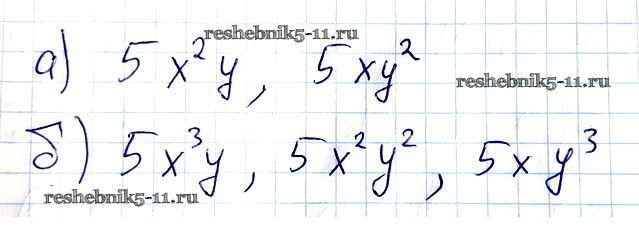 reshebnik5-11.ru
а) 5x²y, 5xy²
reshebnik5-11.ru
б) 5x³y, 5x²y², 5xy³
reshebnik5-11.ru